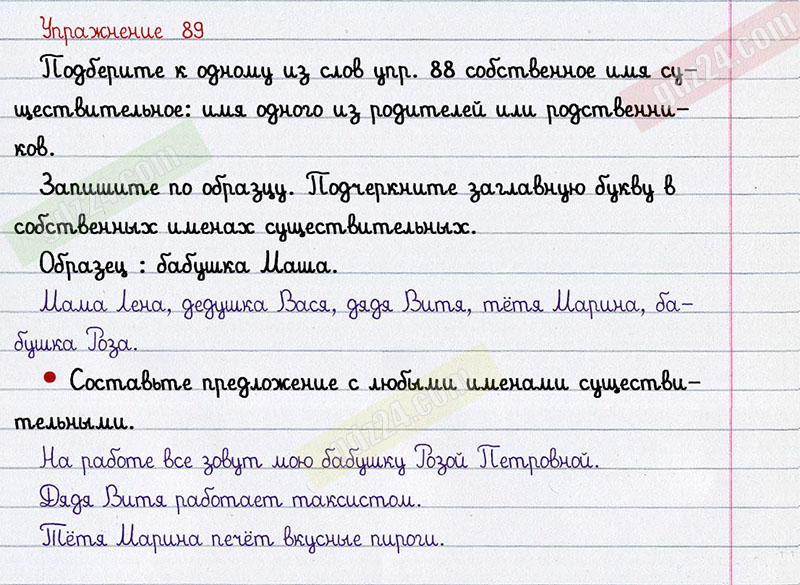 Упражнение 89
Подберите к одному из слов упр. 88 собственное имя су-
ществительное: имя одного из родителей или родственни-
ков.
Запишите по образцу. Подчеркните заглавную букву в
собственных именах существительных.
Образец : бабушка Маша.
Мама Лена, дедушка Вася, дядя Витя, тётя Марина, ба-
бушка Роза.
• Составьте предложение с любыми именами существи-
тельными.
На работе все зовут мою бабушку Розой Петровной.
Дядя Витя работает таксистом.
Тётя Марина печёт вкусные пироги.
gdz24.com
gdz24.com
gdz24.com